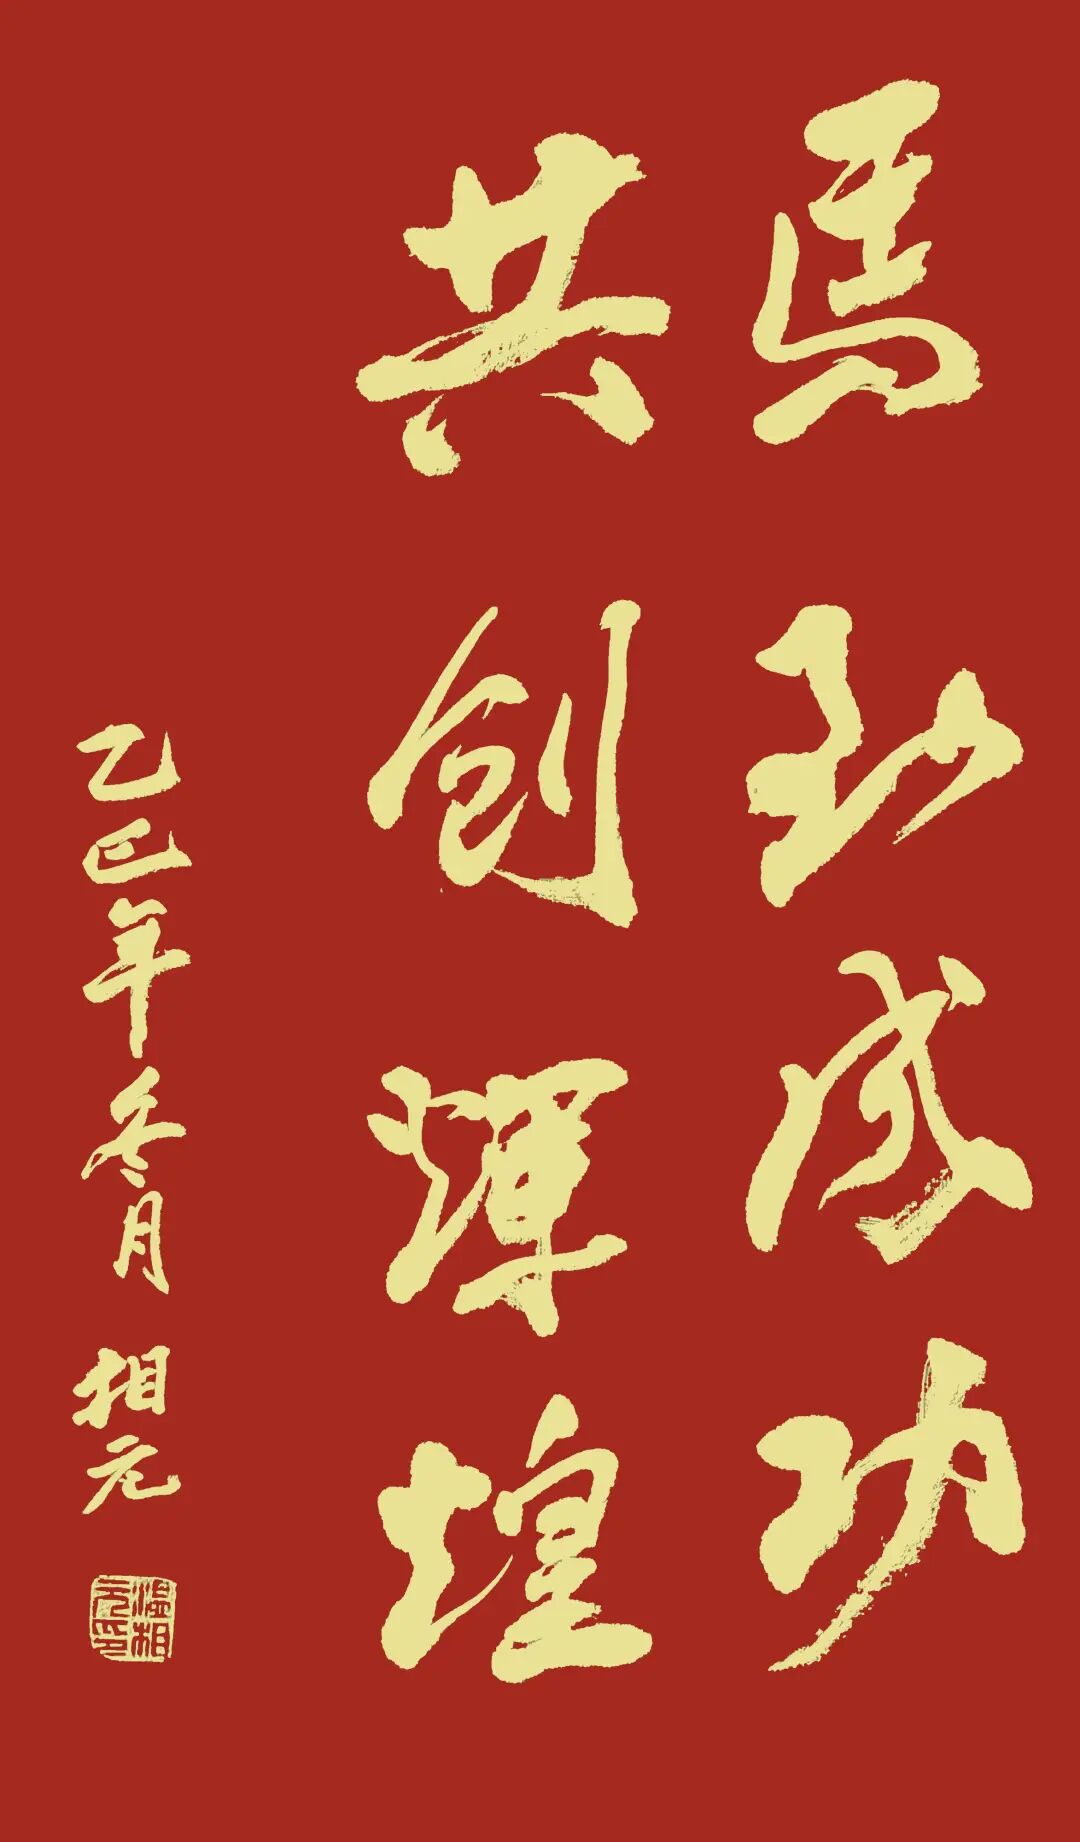 馬到成功
共创輝煌
乙巳年冬月 相元
温相元印